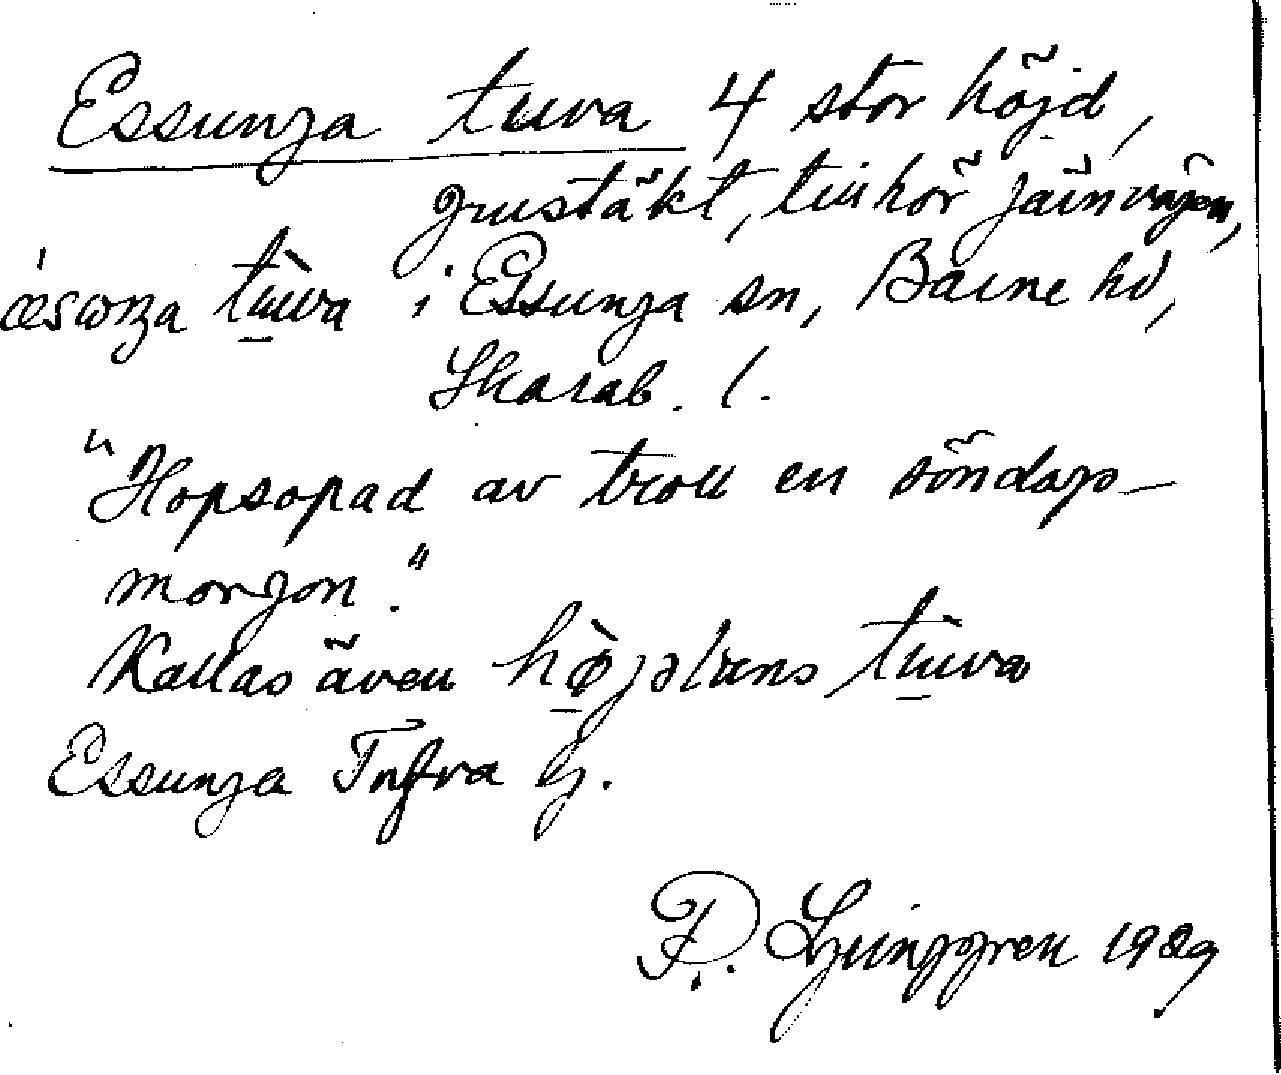 Essunga tuva 4 stor höjd,
grustäkt, tillhör järnvägen,
tùva i Essunga sn, Barne hd,
Skarab. l.
"Hopsopad av troll en söndags-
morgon."
Kallas även tùva
Essunga
R. Ljunggren 1929